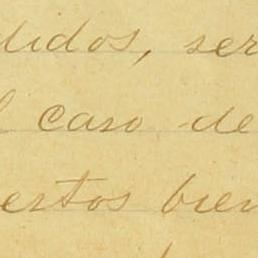 didos, ser
l caso de
ertos bien